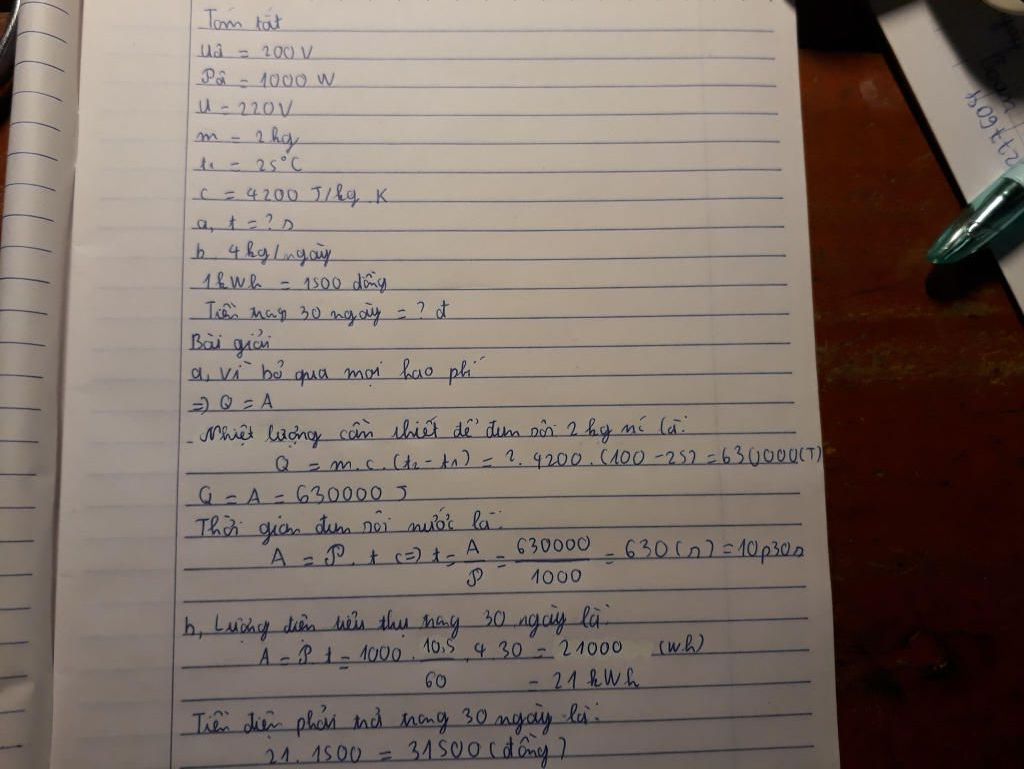 Tóm tắt
Uđ = 200V
Pđ = 1000 W
U = 220V
m = 2kg
t₁ = 25°C
c = 4200 J/kg.K
a, t = ? s
b. 4kg/ngày
1kWh = 1500 đồng
Tiền trong 30 ngày = ? đ
Bài giải
a, Vì bỏ qua mọi hao phí
=> Q = A
- Nhiệt lượng cần thiết để đun sôi 2 kg nc là:
Q = m.c.(t₂ - t₁) = 2.4200.(100-25) = 630000(J)
Q = A = 630000 J
Thời gian đun sôi nước là:
A = P. t (=) t = A/P = 630000/1000 = 630(s) = 10p30s
b, Lượng điện tiêu thụ trong 30 ngày là:
A = P t = 1000 . 10,5/60 . 4.30 = 21000 (W.h)
= 21 kWh
Tiền điện phải trả trong 30 ngày là:
21. 1500 = 31500 (đồng)